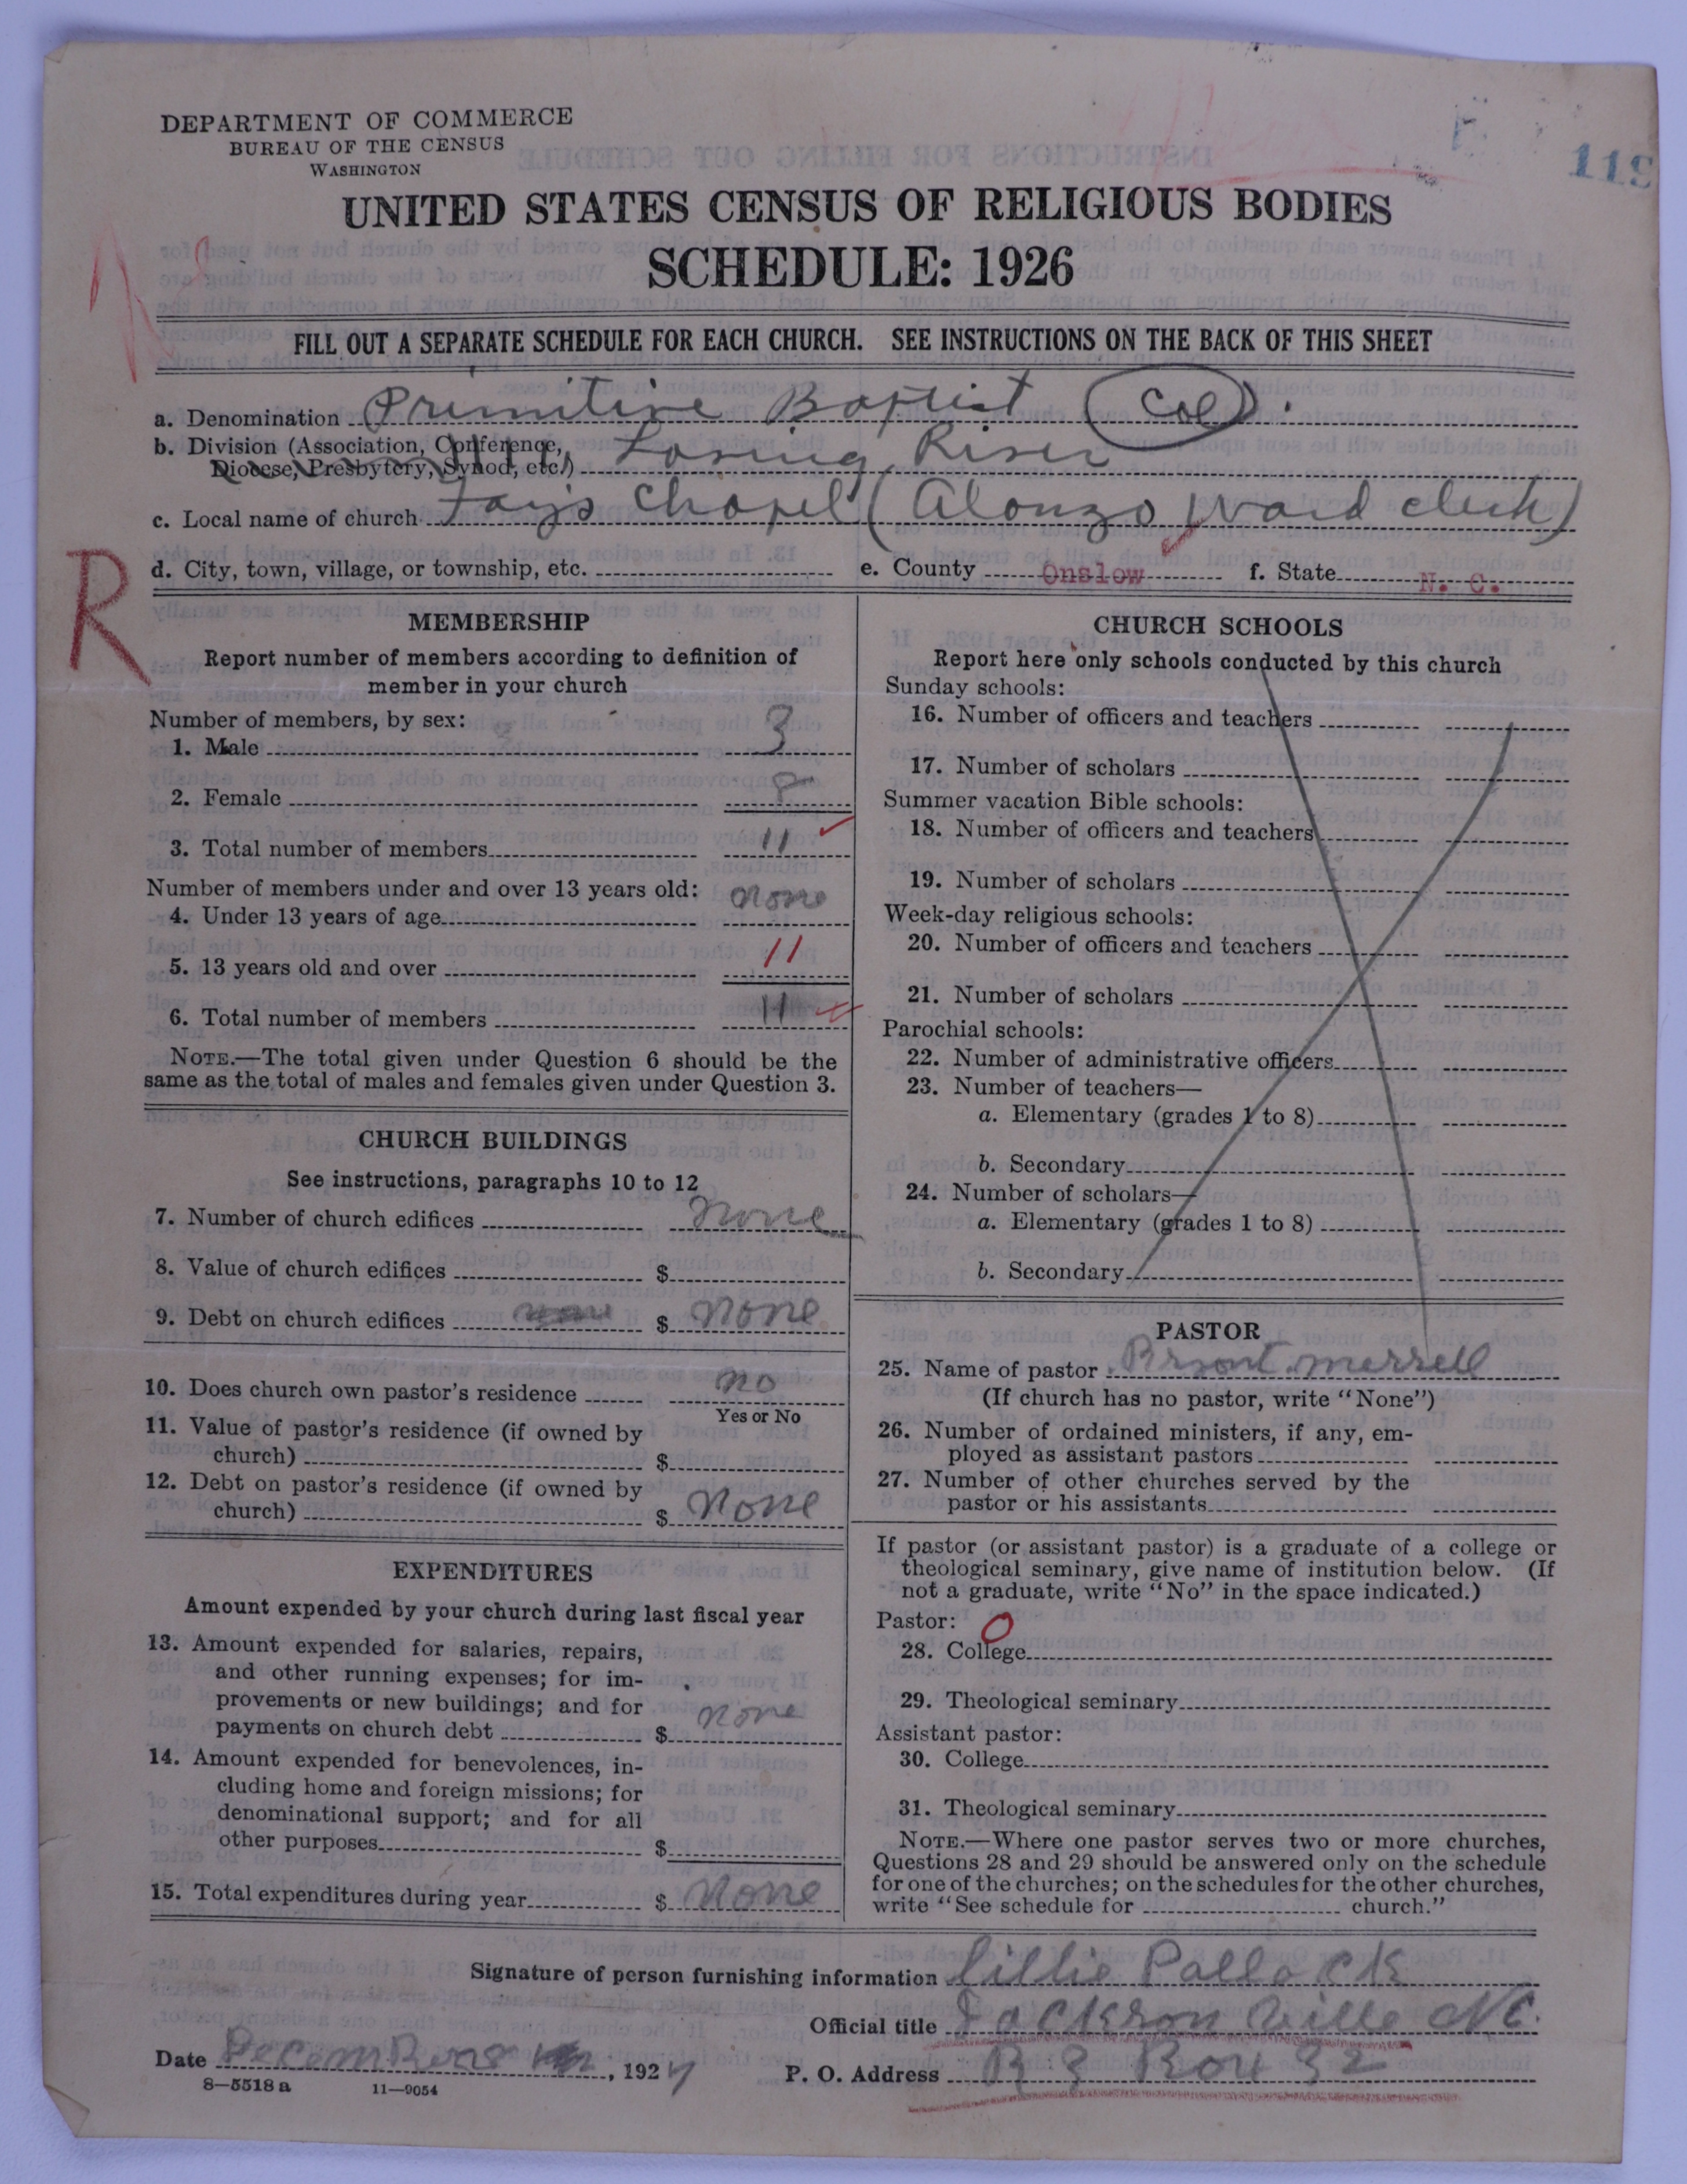 DEPARTMENT OF COMMERCE
BUREAU OF THE CENSUS
WASHINGTON
119
UNITED STATES CENSUS OF RELIGIOUS BODIES
SCHEDULE: 1926
FILL OUT A SEPARATE SCHEDULE FOR EACH CHURCH. SEE INSTRUCTIONS ON THE BACK OF THIS SHEET
a. Denomination Primitive Baptist (Col)
b. Division (Association, Conference,
Diocese, Presbytery, Synod, etc.) River
c. Local name of church Chapel (Alonzo Ward clerk)
d. City, town, village, or township, etc. e. County Onslow f. State N. C.
R
MEMBERSHIP
Report number of members according to definition of
member in your church
Number of members, by sex:
1. Male 3
2. Female 8
3. Total number of members 11
Number of members under and over 13 years old:
4. Under 13 years of age none
5. 13 years old and over 11
6. Total number of members 11
NOTE.—The total given under Question 6 should be the
same as the total of males and females given under Question 3.
CHURCH BUILDINGS
See instructions, paragraphs 10 to 12
7. Number of church edifices none
8. Value of church edifices $
9. Debt on church edifices none $ none
10. Does church own pastor's residence no
Yes or No
11. Value of pastor's residence (if owned by
church) $
12. Debt on pastor's residence (if owned by
church) $ none
EXPENDITURES
Amount expended by your church during last fiscal year
13. Amount expended for salaries, repairs,
and other running expenses; for im-
provements or new buildings; and for
payments on church debt $ none
14. Amount expended for benevolences, in-
cluding home and foreign missions; for
denominational support; and for all
other purposes $
15. Total expenditures during year $ none
CHURCH SCHOOLS
Report here only schools conducted by this church
Sunday schools:
16. Number of officers and teachers
17. Number of scholars
Summer vacation Bible schools:
18. Number of officers and teachers
19. Number of scholars
Week-day religious schools:
20. Number of officers and teachers
21. Number of scholars
Parochial schools:
22. Number of administrative officers
23. Number of teachers—
a. Elementary (grades 1 to 8)
b. Secondary
24. Number of scholars—
a. Elementary (grades 1 to 8)
b. Secondary
PASTOR
25. Name of pastor Brsont merrell
(If church has no pastor, write "None")
26. Number of ordained ministers, if any, em-
ployed as assistant pastors
27. Number of other churches served by the
pastor or his assistants
If pastor (or assistant pastor) is a graduate of a college or
theological seminary, give name of institution below. (If
not a graduate, write "No" in the space indicated.)
Pastor: O
28. College
29. Theological seminary
Assistant pastor:
30. College
31. Theological seminary
NOTE.—Where one pastor serves two or more churches,
Questions 28 and 29 should be answered only on the schedule
for one of the churches; on the schedules for the other churches,
write "See schedule for church."
Signature of person furnishing information Lillie Pollock
Official title Jackson ville NC.
Date , 1927 P. O. Address R 3 Box 32
8—5518 a 11—9054